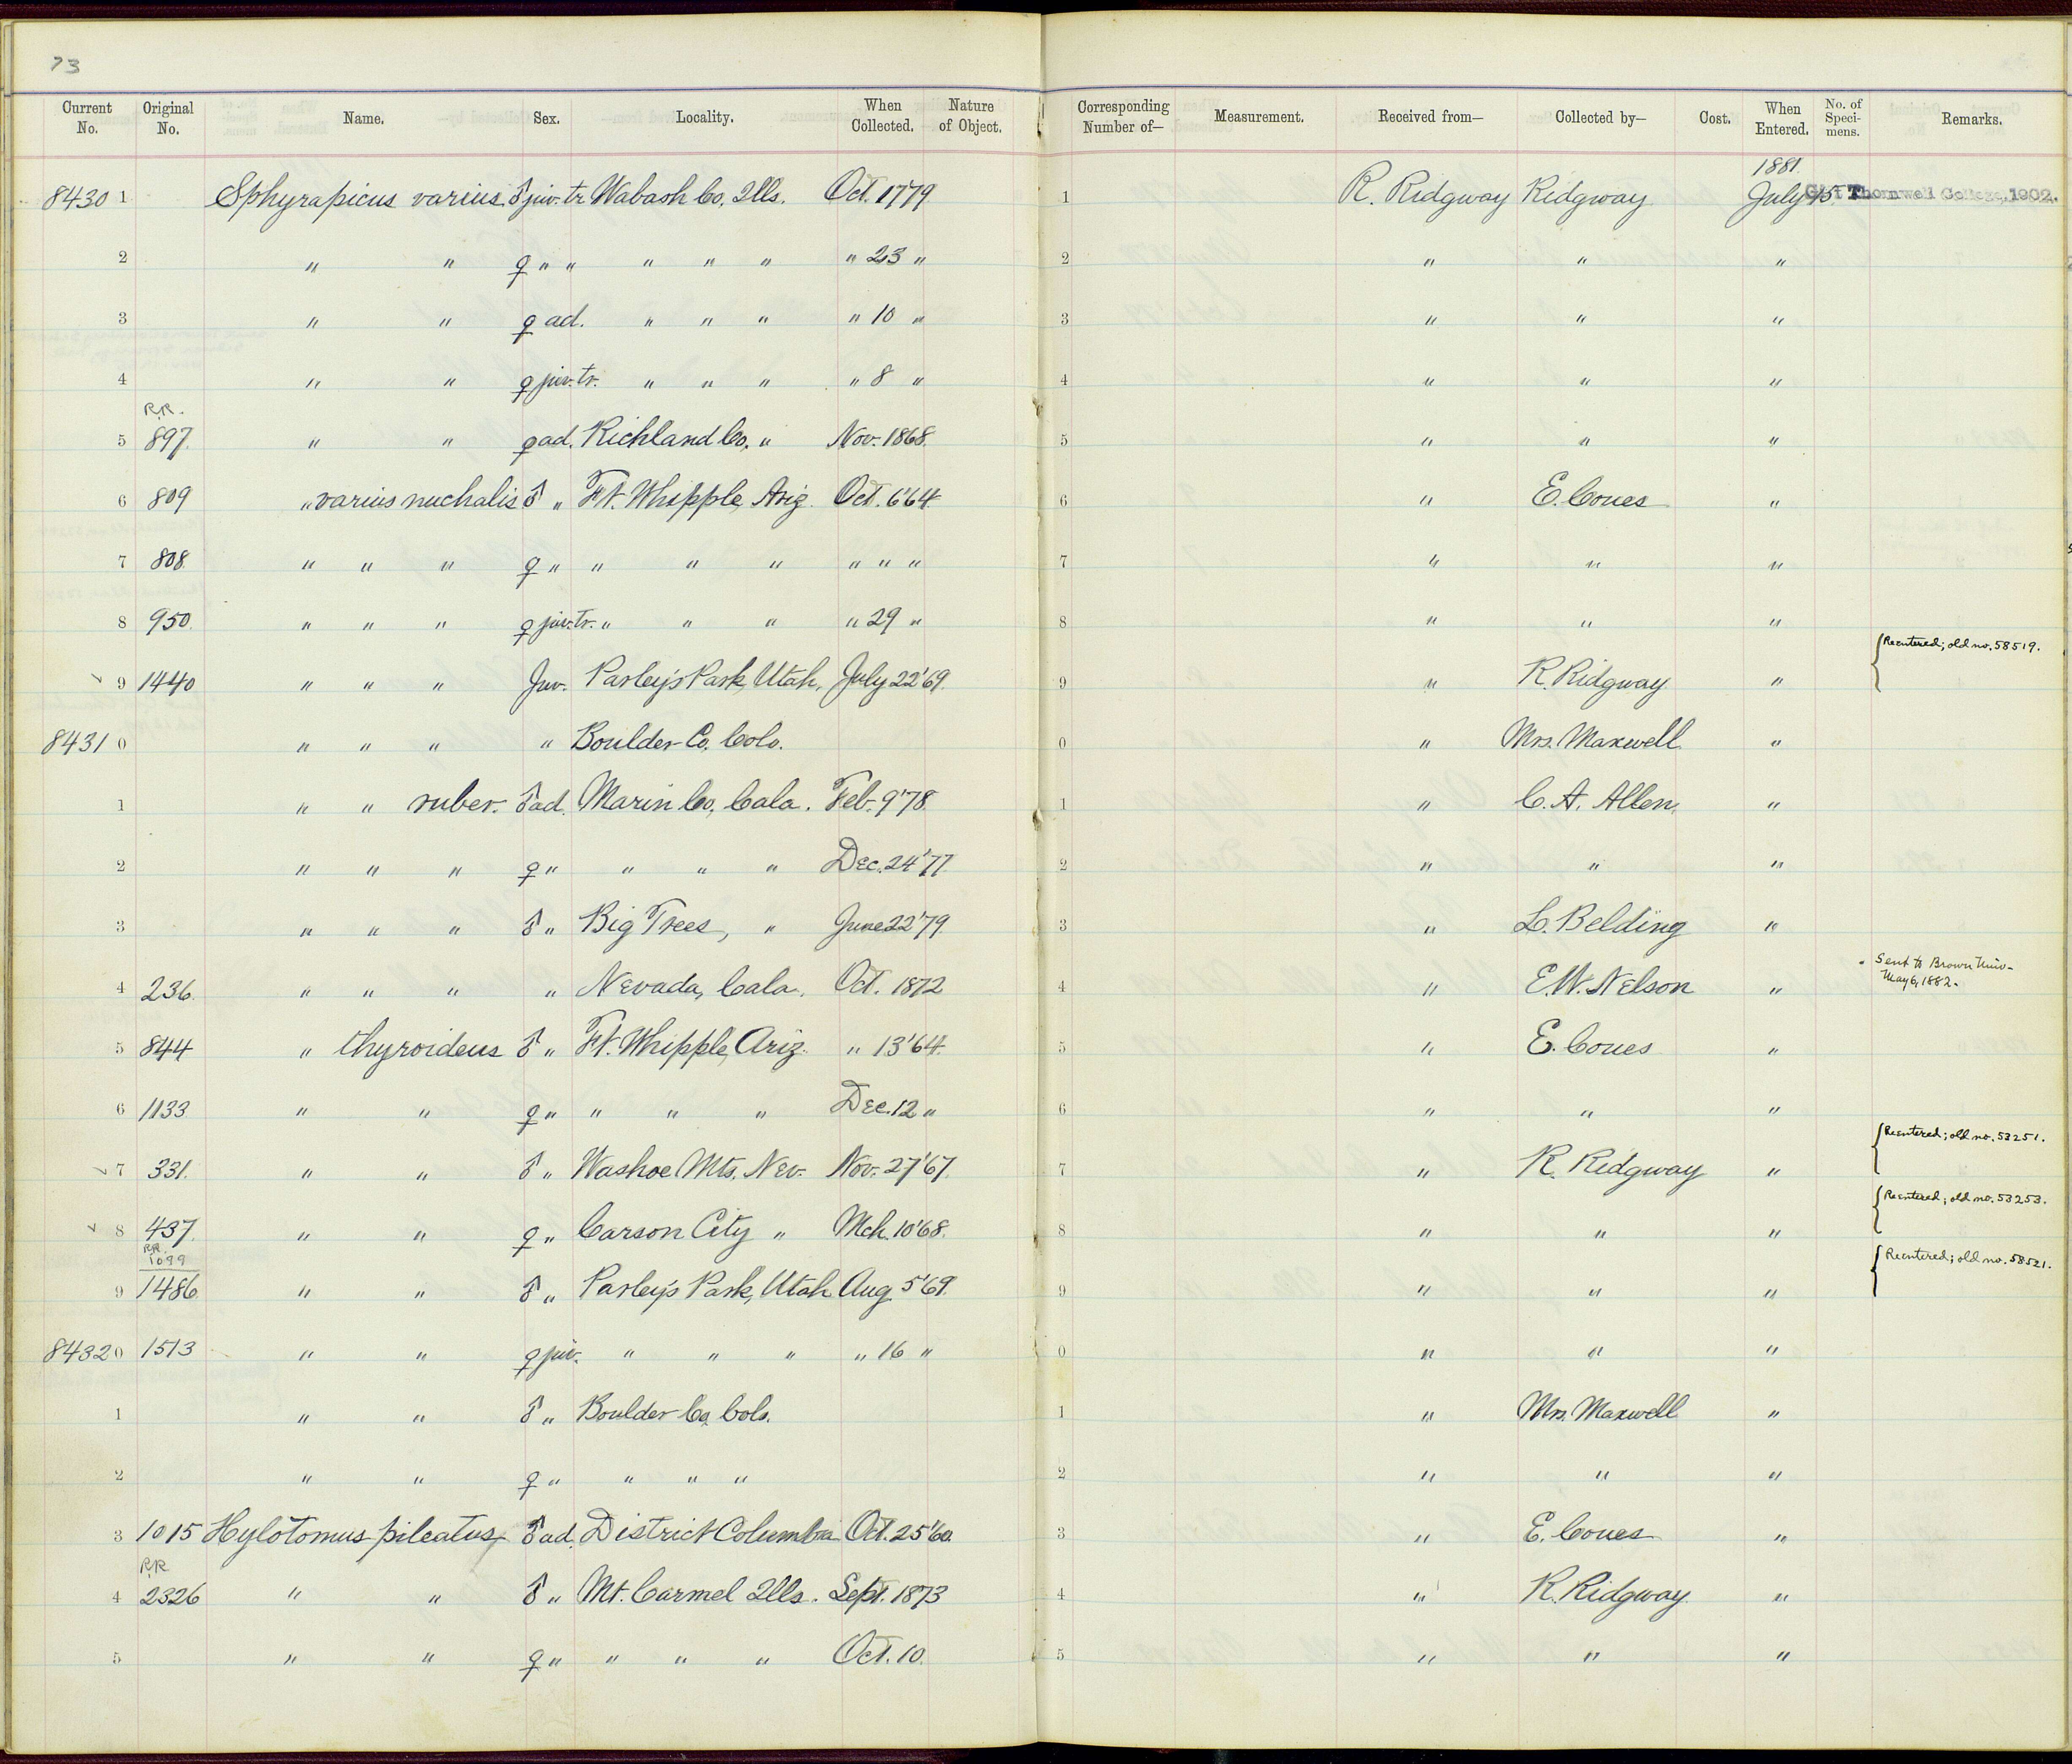 73
Current No. Original No. Name. Sex. Locality. When Collected. Nature of Object. Corresponding Number of— Measurement. Received from— Collected by— Cost. When Entered. No. of Specimens. Remarks.
1881.
8430 1 Sphyrapicus varius ♂ juv. tr. Wabash Co. Ills. Oct. 17 79 1 R. Ridgway Ridgway July 15 Gift Thornwell College, 1902.
2 " " ♀ " " " " " " 23 " 2 " " "
3 " " ♀ ad. " " " " 10 " 3 " " "
4 " " ♀ juv. tr. " " " " 8 " 4 " " "
R.R.
5 897. " " ♀ ad. Richland Co. " Nov. 1868. 5 " " "
6 809 " varius nuchalis ♂ " Ft. Whipple, Ariz. Oct. 6'64. 6 " E. Coues "
7 808 " " " ♀ " " " " " " " 7 " " "
8 950. " " " ♀ juv. tr. " " " " 29 " 8 " " "
Reentered; old no. 58519.
9 1440 " " " Juv. Parley's Park, Utah. July 22'69. 9 " R. Ridgway "
8431 0 " " " " Boulder Co. Colo. 0 " Mrs. Maxwell "
1 " " ruber. ♂ ad. Marin Co., Cala. Feb. 9'78. 1 " C. A. Allen. "
2 " " " ♀ " " " " Dec. 24'77. 2 " " "
3 " " " ♂ " Big Trees, " June 22'79. 3 " L. Belding "
4 236. " " " " Nevada, Cala. Oct. 1872 4 " E. W. Nelson " Sent to Brown Univ.
May 6, 1882.
5 844 " thyroideus ♂ " Ft. Whipple, Ariz. " 13'64. 5 " E. Coues "
6 1133 " " ♀ " " " " Dec. 12 " 6 " " "
Reentered; old no. 53251.
7 331. " " ♂ " Washoe Mts. Nev. Nov. 27'67. 7 " R. Ridgway "
Reentered; old no. 53253.
8 437. " " ♀ " Carson City " Mch. 10'68. 8 " " "
R.R.
1099
Reentered; old no. 58521.
9 1486. " " ♂ " Parley's Park, Utah Aug 5'69. 9 " " "
8432 0 1513 " " ♀ juv. " " " " 16 " 0 " " "
1 " " ♂ " Boulder Co. Colo. 1 " Mrs. Maxwell "
2 " " ♀ " " " " 2 " " "
3 1015 Hylotomus pileatus ♂ ad. District Columbia Oct. 25'60. 3 " E. Coues "
R.R.
4 2326 " " ♂ " Mt. Carmel Ills. Sept. 1873 4 " R. Ridgway "
5 " " ♀ " " " " Oct. 10. 5 " " "